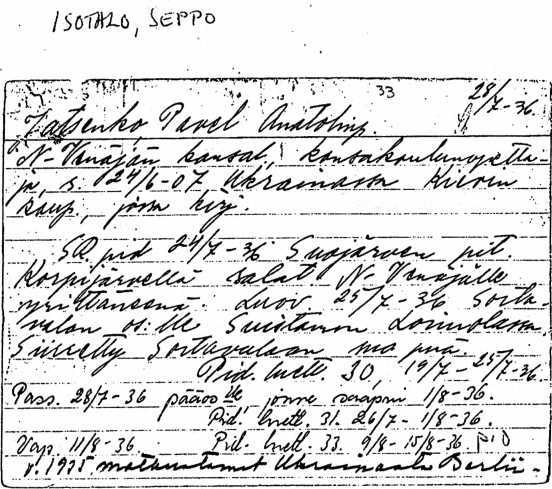 ISOTALO, SEPPO
33 28/7-36.
Jatsenko, Pavel Anatolinp.
N-Venäjän kansal., kansakoulunopetta-
ja, s. 24/6-07 Ukrainassa Kievin
kaup., jossa kirj.
SR. pid 24/7-36 Suojärven pit.
Korpijärvellä salat N-Venäjälle
yrittäneenä. Luov 25/7-36 Sorta-
valan os:lle Suistamon Loimolassa.
Siirretty Sortavalaan ma pnä.
Pid. luett. 30, 19/7-25/7-36.
Pass. 28/7-36 pääos:lle jonne saapui 1/8-36.
Pid. luett. 31. 26/7-1/8-36.
Vap. 11/8-36. Pid. luett. 33. 9/8-15/8-36. pid
v. 1935 matkustanut Ukrainasta Berlii-